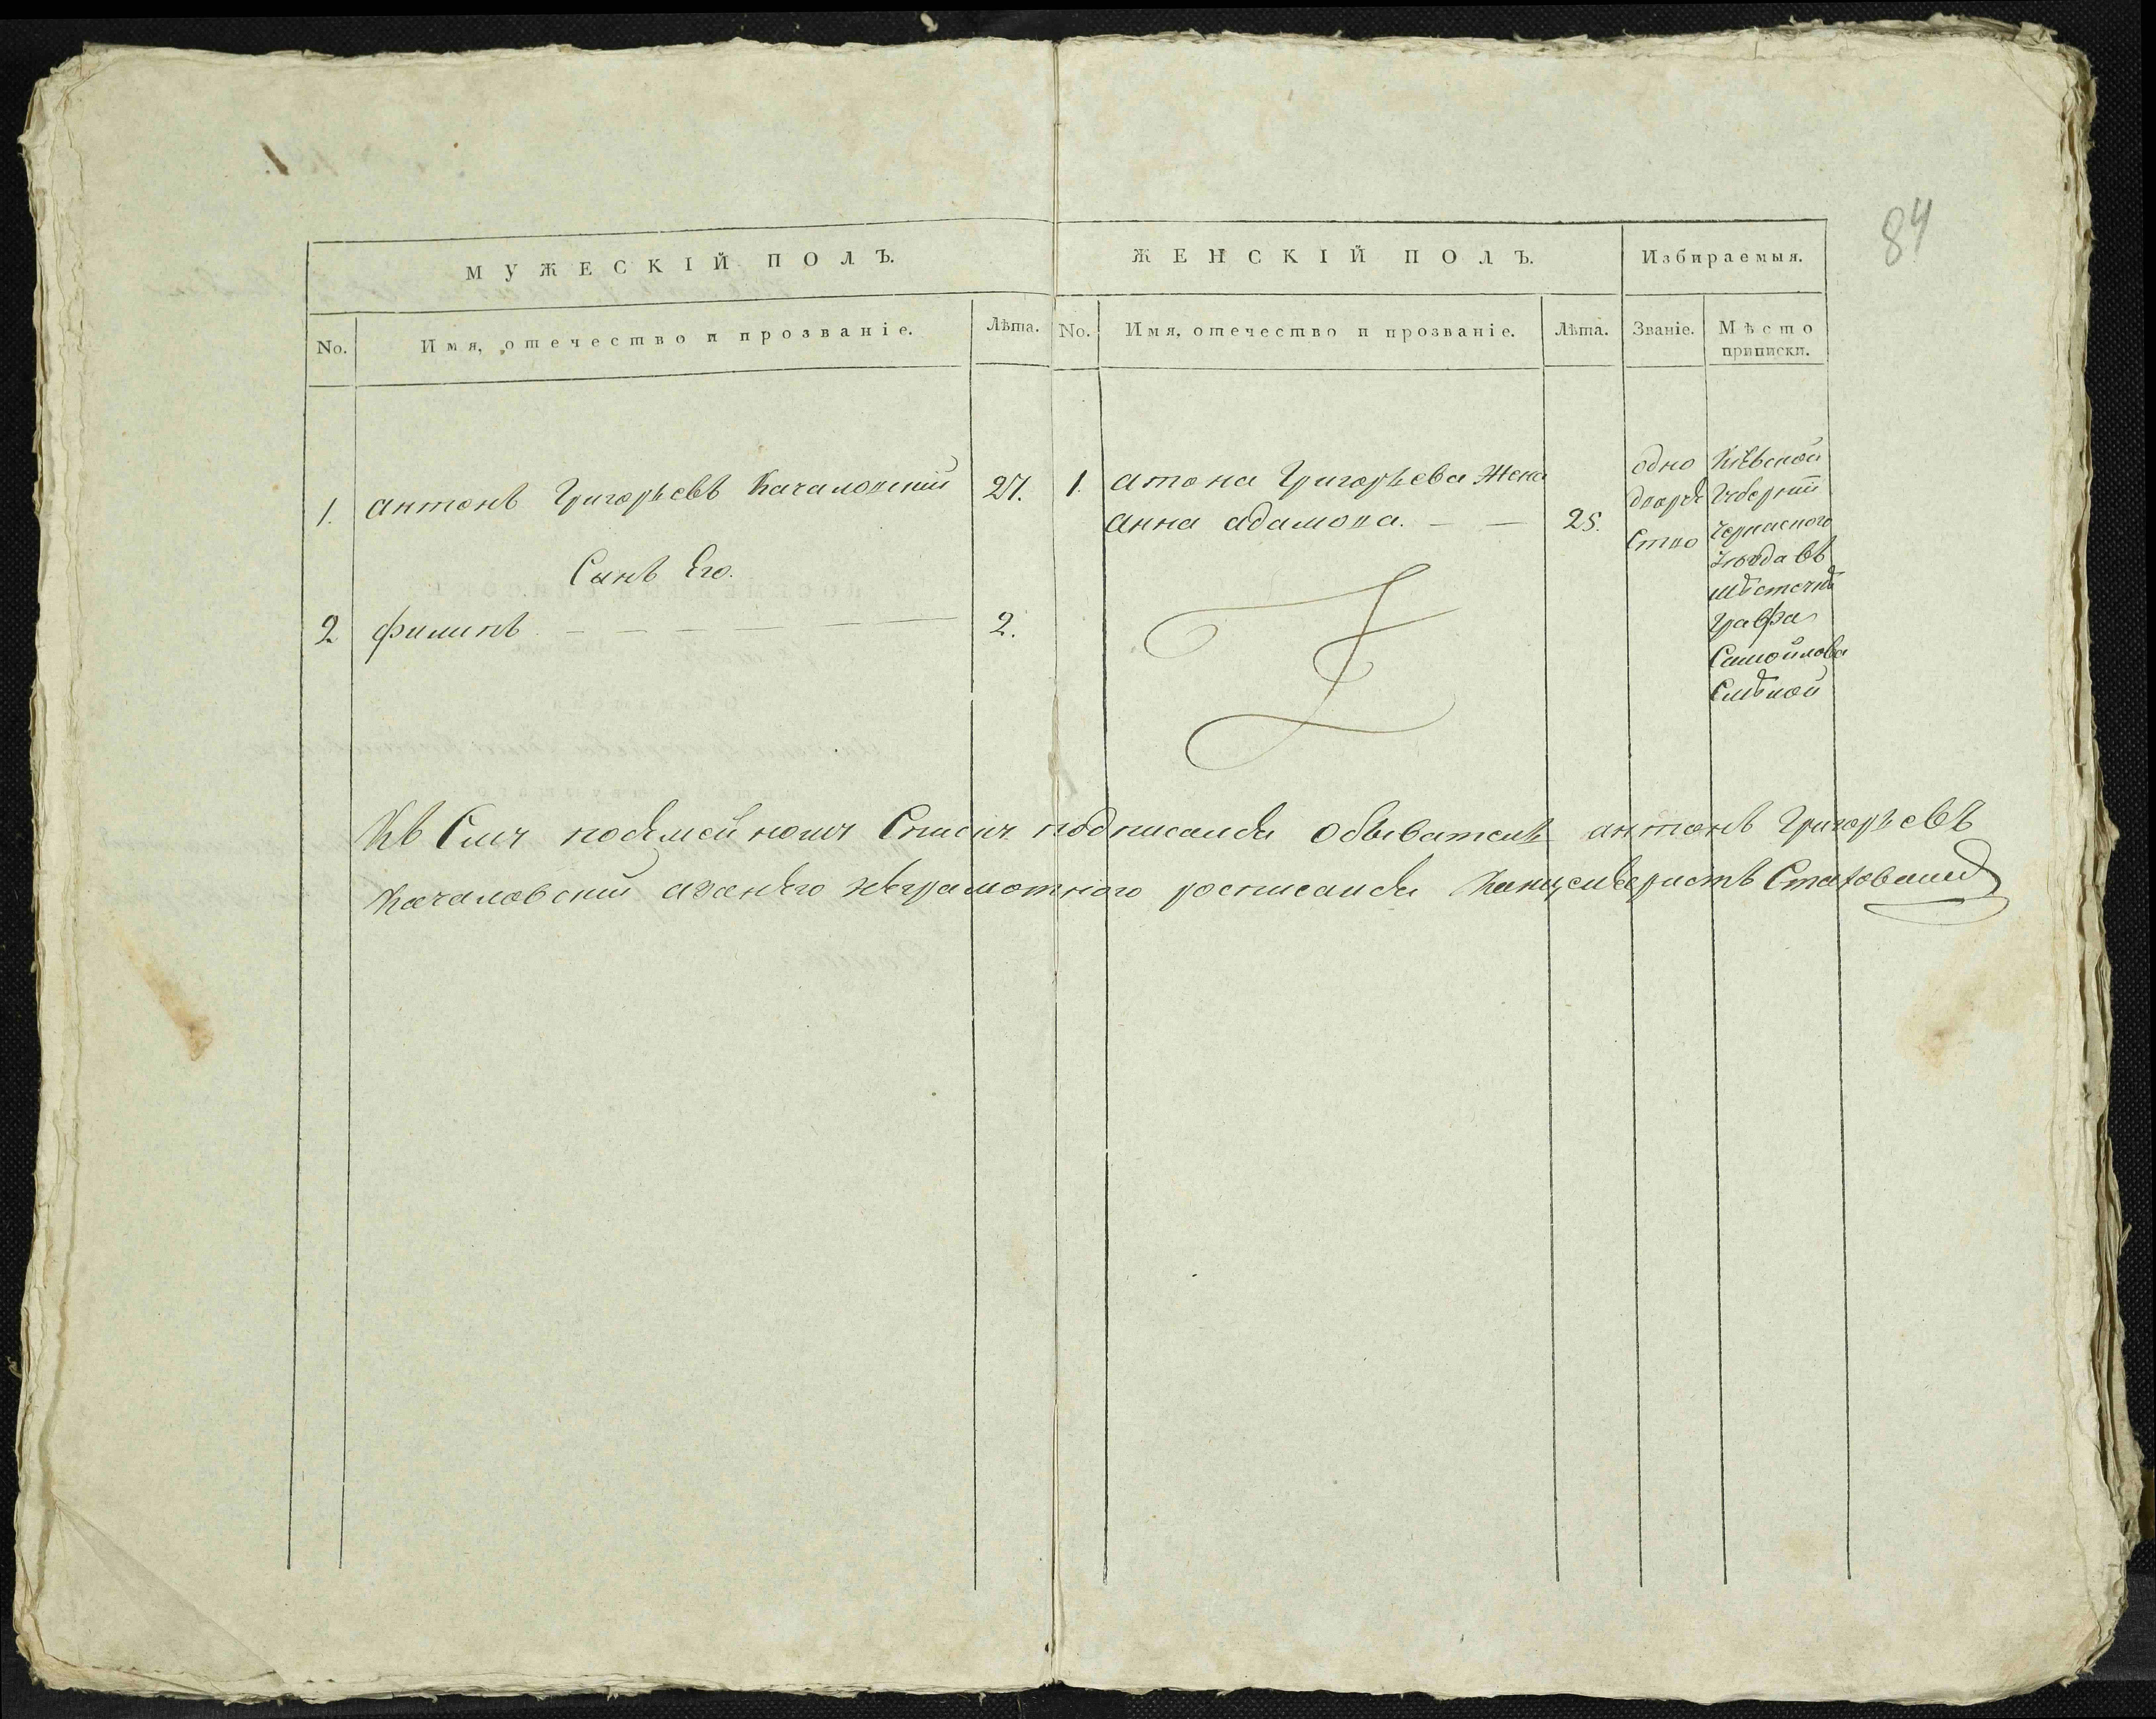 84
МУЖЕСКІЙ ПОЛЪ.
ЖЕНСКІЙ ПОЛЪ.
Избираемыя.
No.
Имя, отечество и прозваніе.
Лѣта.
No.
Имя, отечество и прозваніе.
Лѣта.
Званіе.
Мѣсто
приписки.
1. антонъ Григорьевъ Качаловскій 27.
Сынъ Его.
2 филипъ 2.
1. атона Григорьева Жена
анна адамова. 25.
одно
дворче
ство
Кіевской
Губерніи
Черкаского
уезда въ
местечке
графа
Самойлова
Смѣлой
Къ Сему посемейному Списку подписался обыватель антонъ Григорьевъ
Качаловскій азанего неграмотного росписался Канцеляристъ